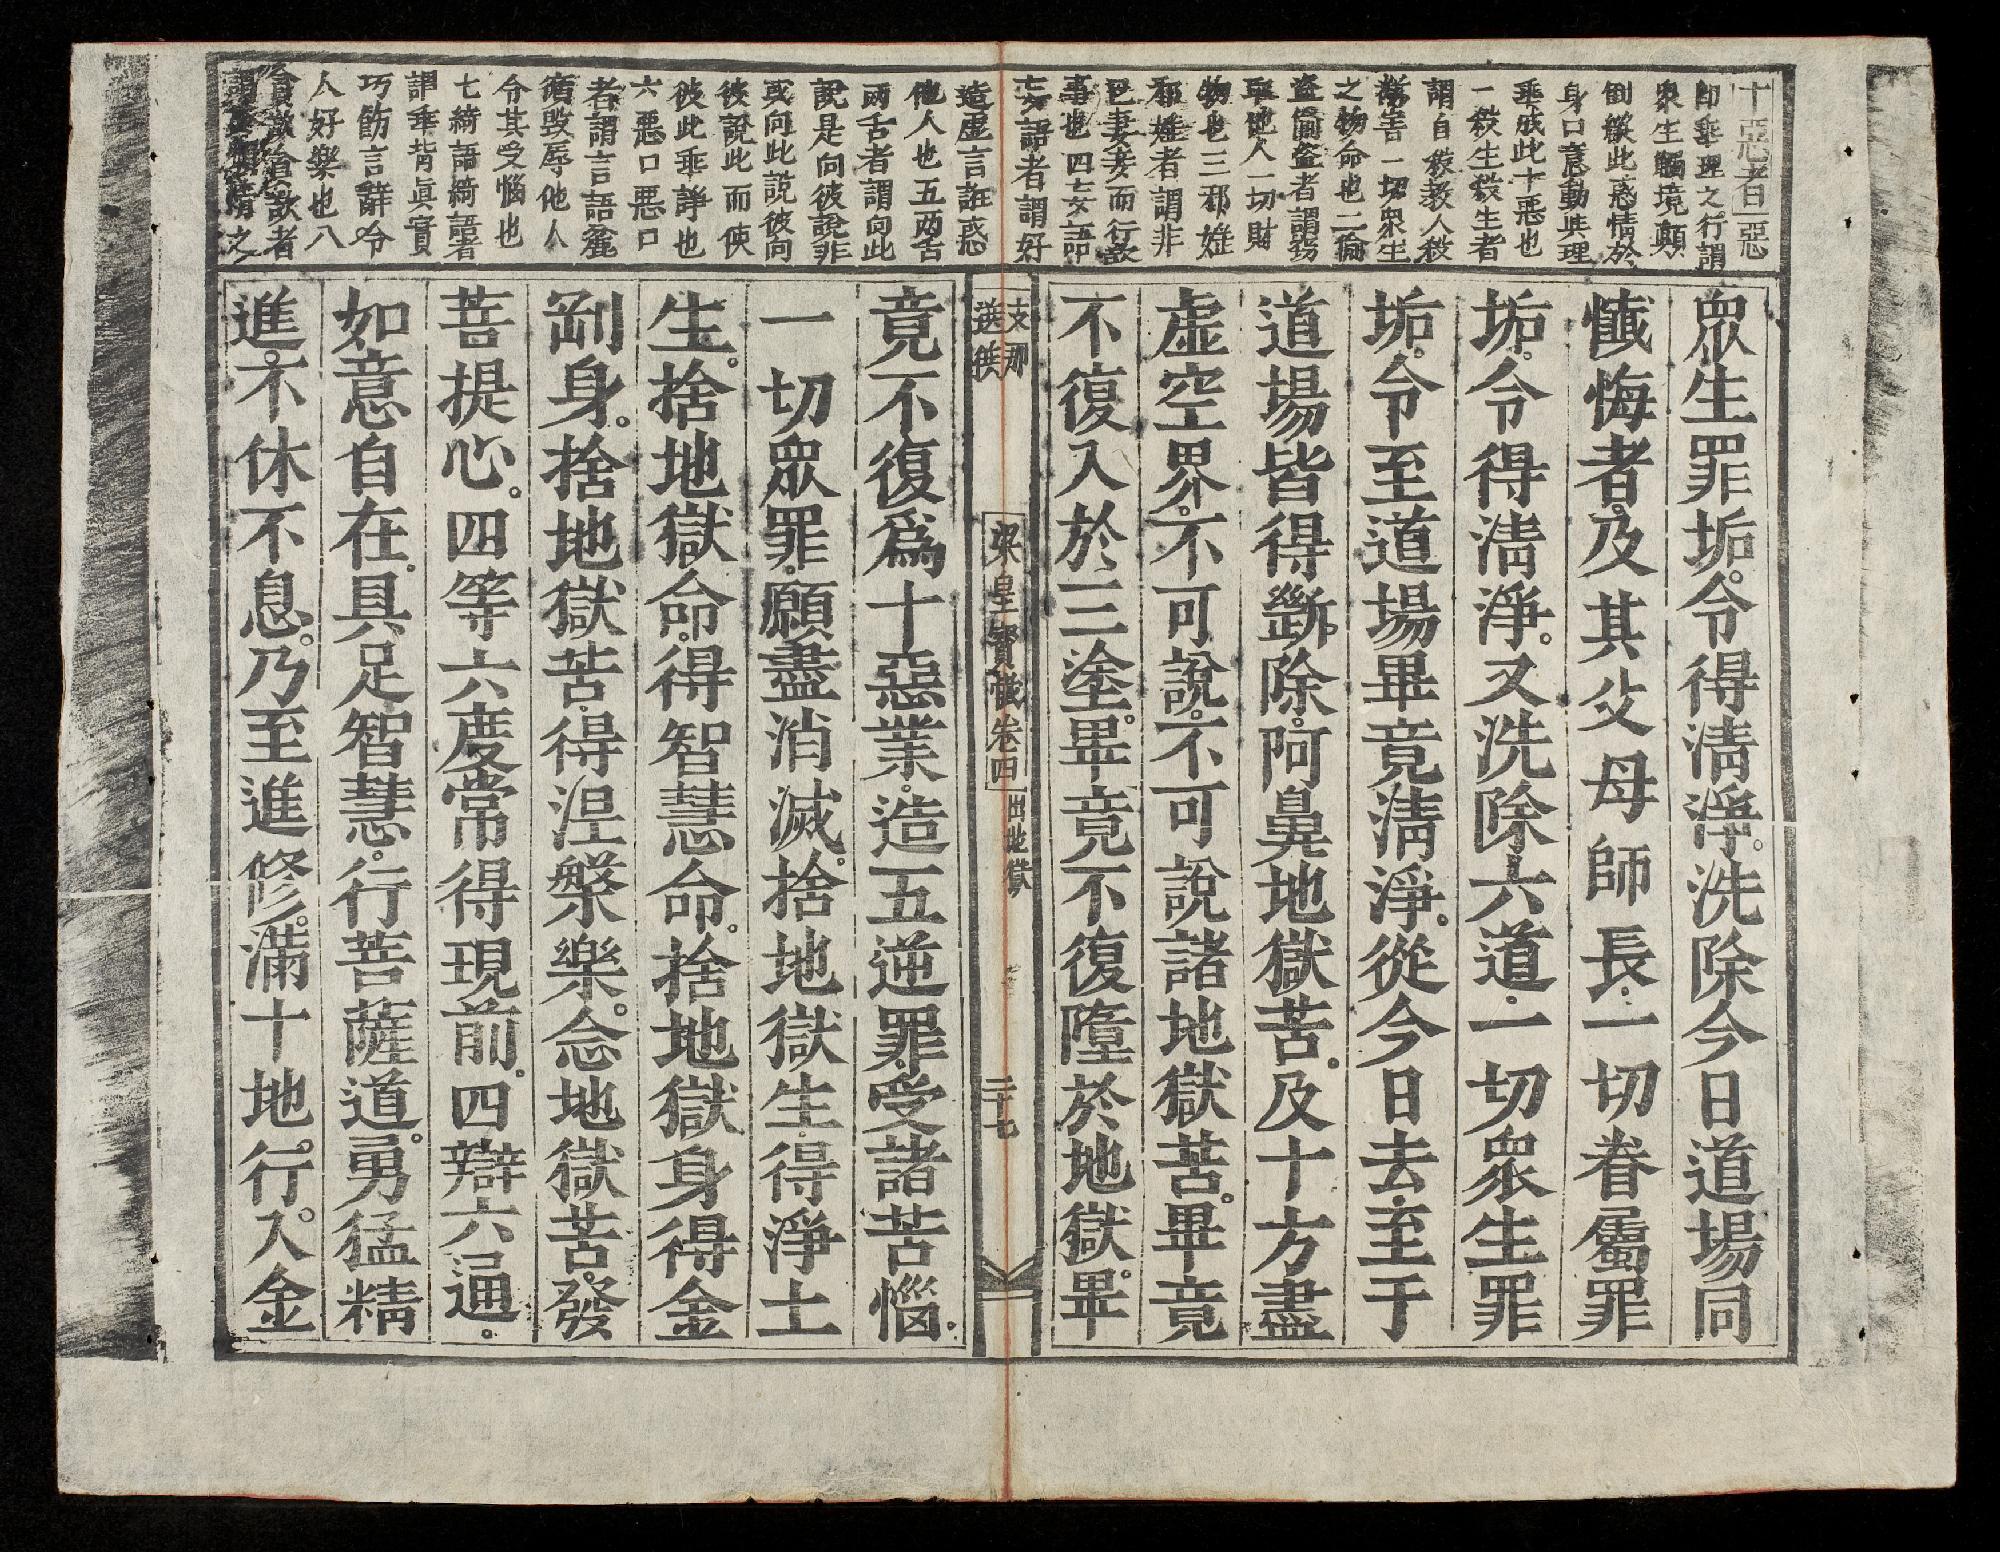 十惡者惡
即乖理之行謂
衆生觸境顛
倒縱此惑情於
身口意動與理
乖成此十惡也
一殺生殺生者
謂自殺教人殺
害一切衆生
之物命也二偷
盜偷盜者謂竊
取他人一切財
物也三邪婬
邪婬者謂非
己妻妾而行欲
事也四妄語
妄語者謂好
造虛言誑惑
他人也五兩舌
兩舌者謂向此
說是向彼說非
或向此說彼向
彼說此而使
彼此乖諍也
六惡口惡口
者謂言語麤
獷毀辱他人
令其受惱也
七綺語綺語者
謂乖背眞實
巧飾言辭令
人好樂也八
貪欲貪欲者
情之
眾生罪垢令得清淨。洗除今日道場同
懺悔者及其父母師長一切眷屬罪
垢。令得清淨。又洗除六道一切衆生罪
垢。令至道場畢竟清淨。從今日去至于
道場皆得斷除。阿鼻地獄苦。及十方盡
虛空界。不可說。不可說諸地獄苦。畢竟
不復入於三塗。畢竟不復墮於地獄。畢
支那
選送
梁皇寶懺卷四
出地獄
二十七
竟不復爲十惡業。造五逆罪受諸苦惱。
一切眾罪。願盡消滅。捨地獄生。得淨土
生。捨地獄命。得智慧命。捨地獄身得金
剛身。捨地獄苦。得涅槃樂。念地獄苦。發
菩提心。四等六度常得現前。四辯六通。
如意自在。具足智慧。行菩薩道。勇猛精
進。不休不息。乃至進修。滿十地行。入金